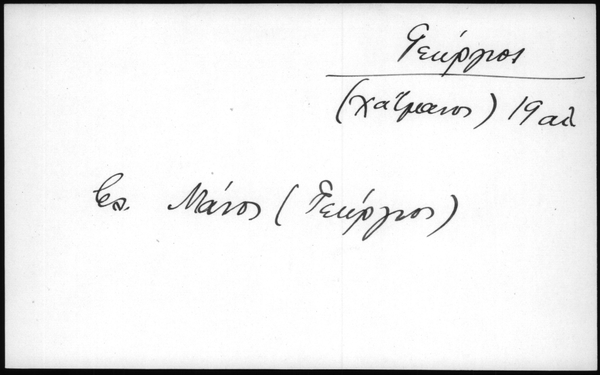 Γεώργιος
(χάτμανος) 19 αἰ
βλ. Μάνος (Γεώργιος)